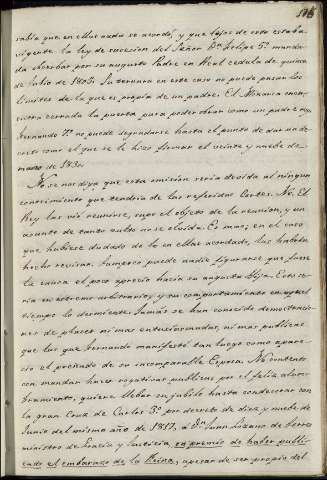 sabia que en ella nada se acordó, y que lejos de esto estaba
vigente la ley de sucesion del Señor Dn. Felipe 5º manda-
da observar por su augusto Padre en Real cedula de quince
de Julio de 1805. Su ternura en este caso no puede pasar los
limites de la que es propia de un padre. El Monarca
cerrada la puerta para poder obrar como un padre
Fernando 7º no puede degradarse hasta el punto de dar un de-
creto como el que se le hizo firmar el veinte y nueve de
marzo de 1830.
No se nos diga que esta omision seria devida al ningun
conocimiento que tendria de las referidas Cortes. No. El
Rey las vió reunirse, supo el objeto de la reunion, y un
asunto de tanto bulto no se olvida. Es mas; en el caso
que hubiese dudado de lo en ellas acordado, las habria
hecho revisar. Tampoco puede nadie figurarse que fuese
la causa el poco aprecio hacia su augusta Hija. Esto se-
ria en estremo arbitrario, y su comportamiento en aquel
tiempo lo desmiente. Jamás se han conocido demostracio-
nes de placer ni mas entusiasmadas, ni mas publicas
que las que Fernando manifestó tan luego como apare-
ció el preñado de su incomparable Esposa. No contento
con mandar hacer rogativas publicas por el feliz alum-
bramiento, quiere llebar su jubilo hasta condecorar con
la gran Cruz de Carlos 3º por decreto de diez y nueve de
Junio del mismo año de 1817. a Dn. Juan Lozano de Torres
ministro de Gracia y Justicia, en premio de haber publi-
cado el embarazo de la Reina, apesar de ser propio del